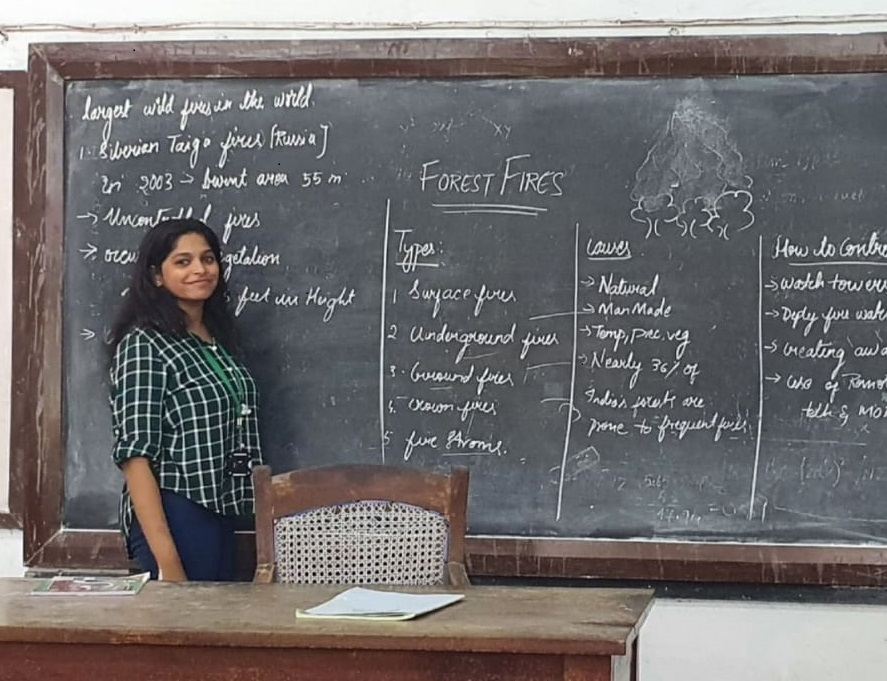 Largest wild fires in the world.
1. Siberian Taiga fires [Russia]
In 2003 → burnt area 55 m
→ Uncontrolled fires
→ occu getation
feet in Height
→
FOREST FIRES
Types:
1 Surface fires
2 Underground fires
3. Ground fires
4. Crown fires
5 fire Stroms.
Causes
→ Natural
→ ManMade
→ Temp, Prec, veg
→ Nearly 36% of
India's forests are
prone to frequent fires
How to Contro
→ watch tower
→ Deply fire wat
→ creating awa
→ Use of Remo
teh & Mo